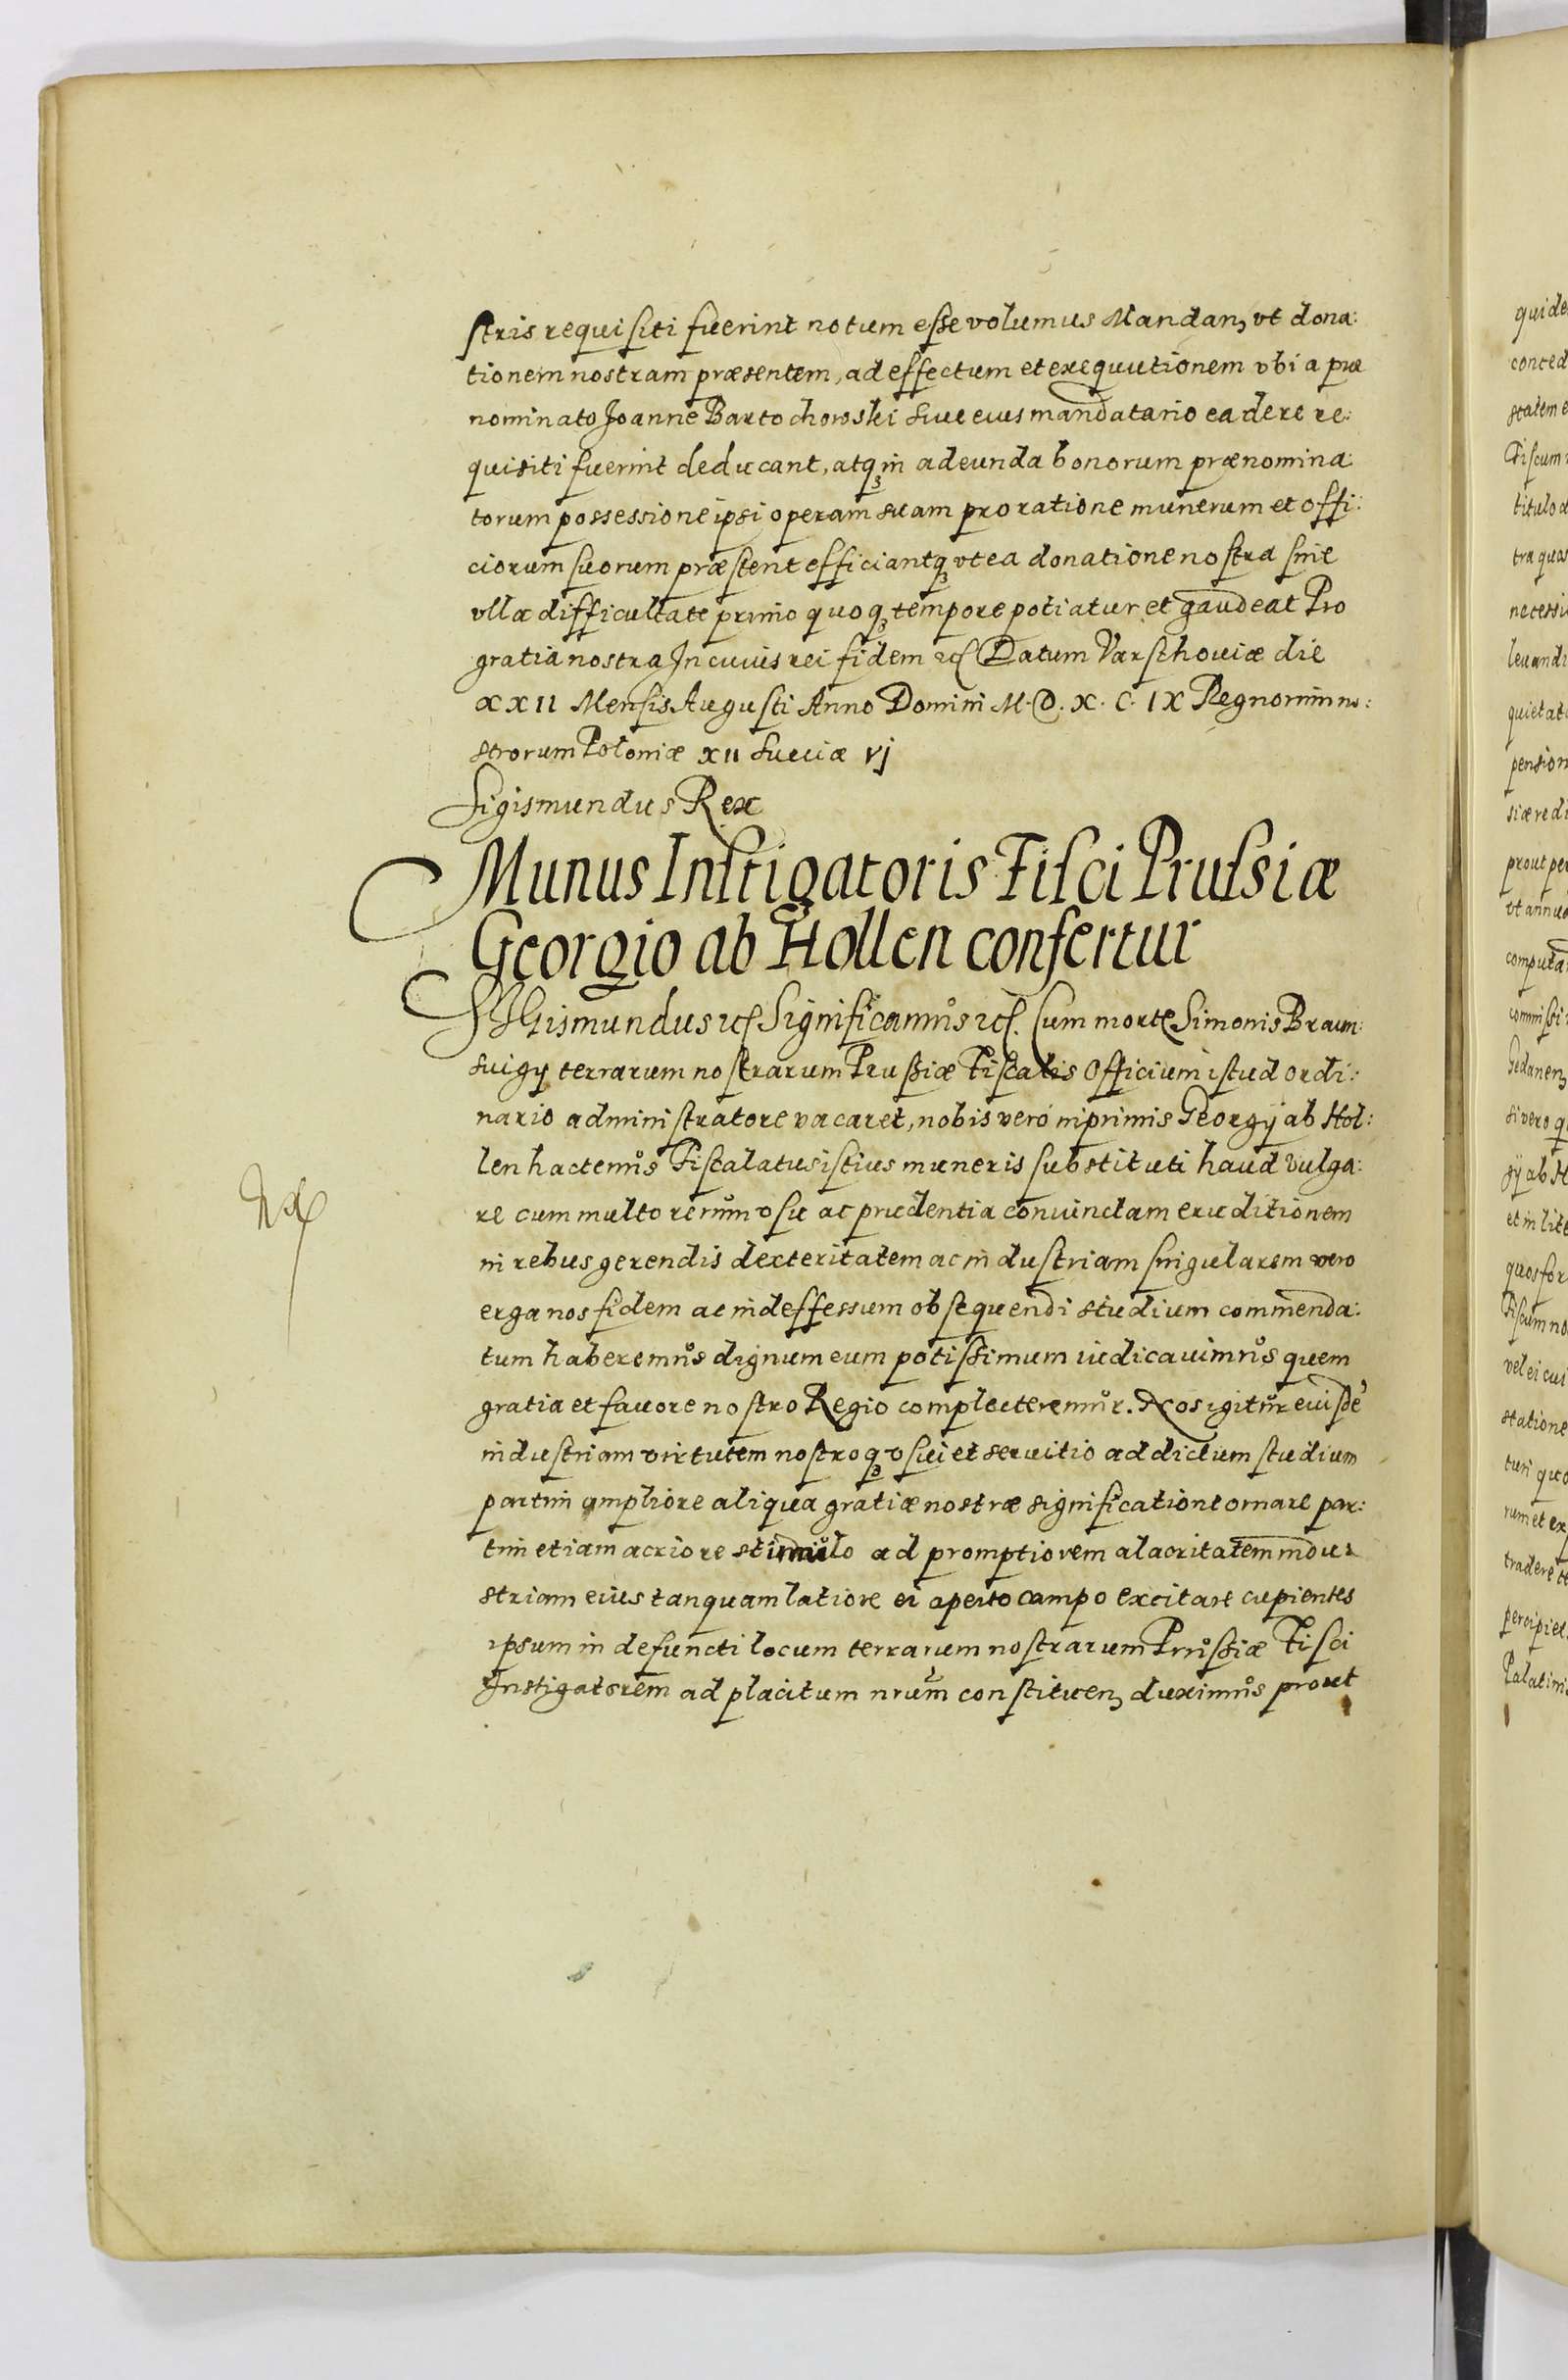 stris requisiti fuerint notum esse volumus Mandanꝫ vt dona:
tionem nostram præsentem, ad effectum et exequutionem vbi a præ
nominato Joanne Bartochowski siue eius mandatario ea de re re:
quisiti fuerint deducant, atqꝫ in adeunda bonorum prænomina:
torum possessione ipsi operam suam pro ratione munerum et offi:
ciorum suorum præstent efficiantqꝫ vt ea donatione nostra sine
vlla difficultate primo quoqꝫ tempore potiatur et gaudeat Pro
gratia nostra In cuius rei fidem etc Datum Varschouiæ die
XXII Mensis Augusti Anno Domini M.D.X.C.IX Regnorum no:
strorum Poloniæ XII Sueciæ vj
Sigismundus Rex
Munus Instigatoris Fisci Prussiæ
Georgio ab Hollen confertur
SIgismundus etc Significamus etc. Cum morte Simonis Braun:
suigy terrarum nostrarum Prussiæ Fiscalis Officium istud ordi:
nario administratore vacaret, nobis vero inprimis Georgÿ ab Hol:
len hactenus Fiscalatus istius muneris substituti haud vulga:
re cum multo rerum vsu ac prudentia conuinctam eruditionem
in rebus gerendis dexteritatem ac industriam singularem vero
erga nos fidem ac indeffessum obsequendi studium commenda:
tum haberemus dignum eum potissimum iudicauimus quem
gratia et fauore nostro Regio complecteremur. Nos igitur eiusdē
industriam virtutem nostroqꝫ vsui et seruitio addictum studium
partim ampliore aliqua gratiæ nostræ significatione ornare par:
tim etiam acriore stimulo ad promptiorem alacritatem indu:
striam eius tanquam latiore ei aperto campo excitare cupientes
ipsum in defuncti locum terrarum nostrarum Prussiæ Fisci
Instigatorem ad placitum nrum constituenꝫ duximus prout
quide
conced
statem e
Fiscum
titulo
tra quas
necessi
leuandi
quietat
pension
siæ redi
prout per
vt annuo
computa
commissi
Gedanenꝫ
si vero q
gÿ ab H
et in lite
quos for
Fiscum no
vel ei cui
statione
turi quo
rum et ex
tradere te
percipiet
Palatini